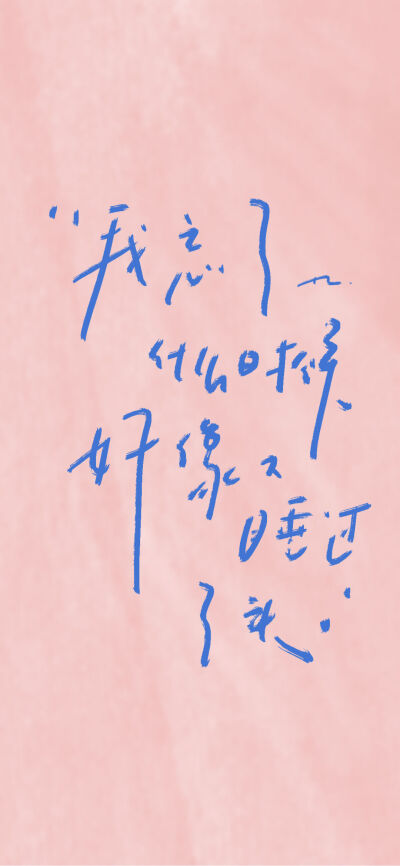 “我忘了
什么时候
好像又
睡过
了头”